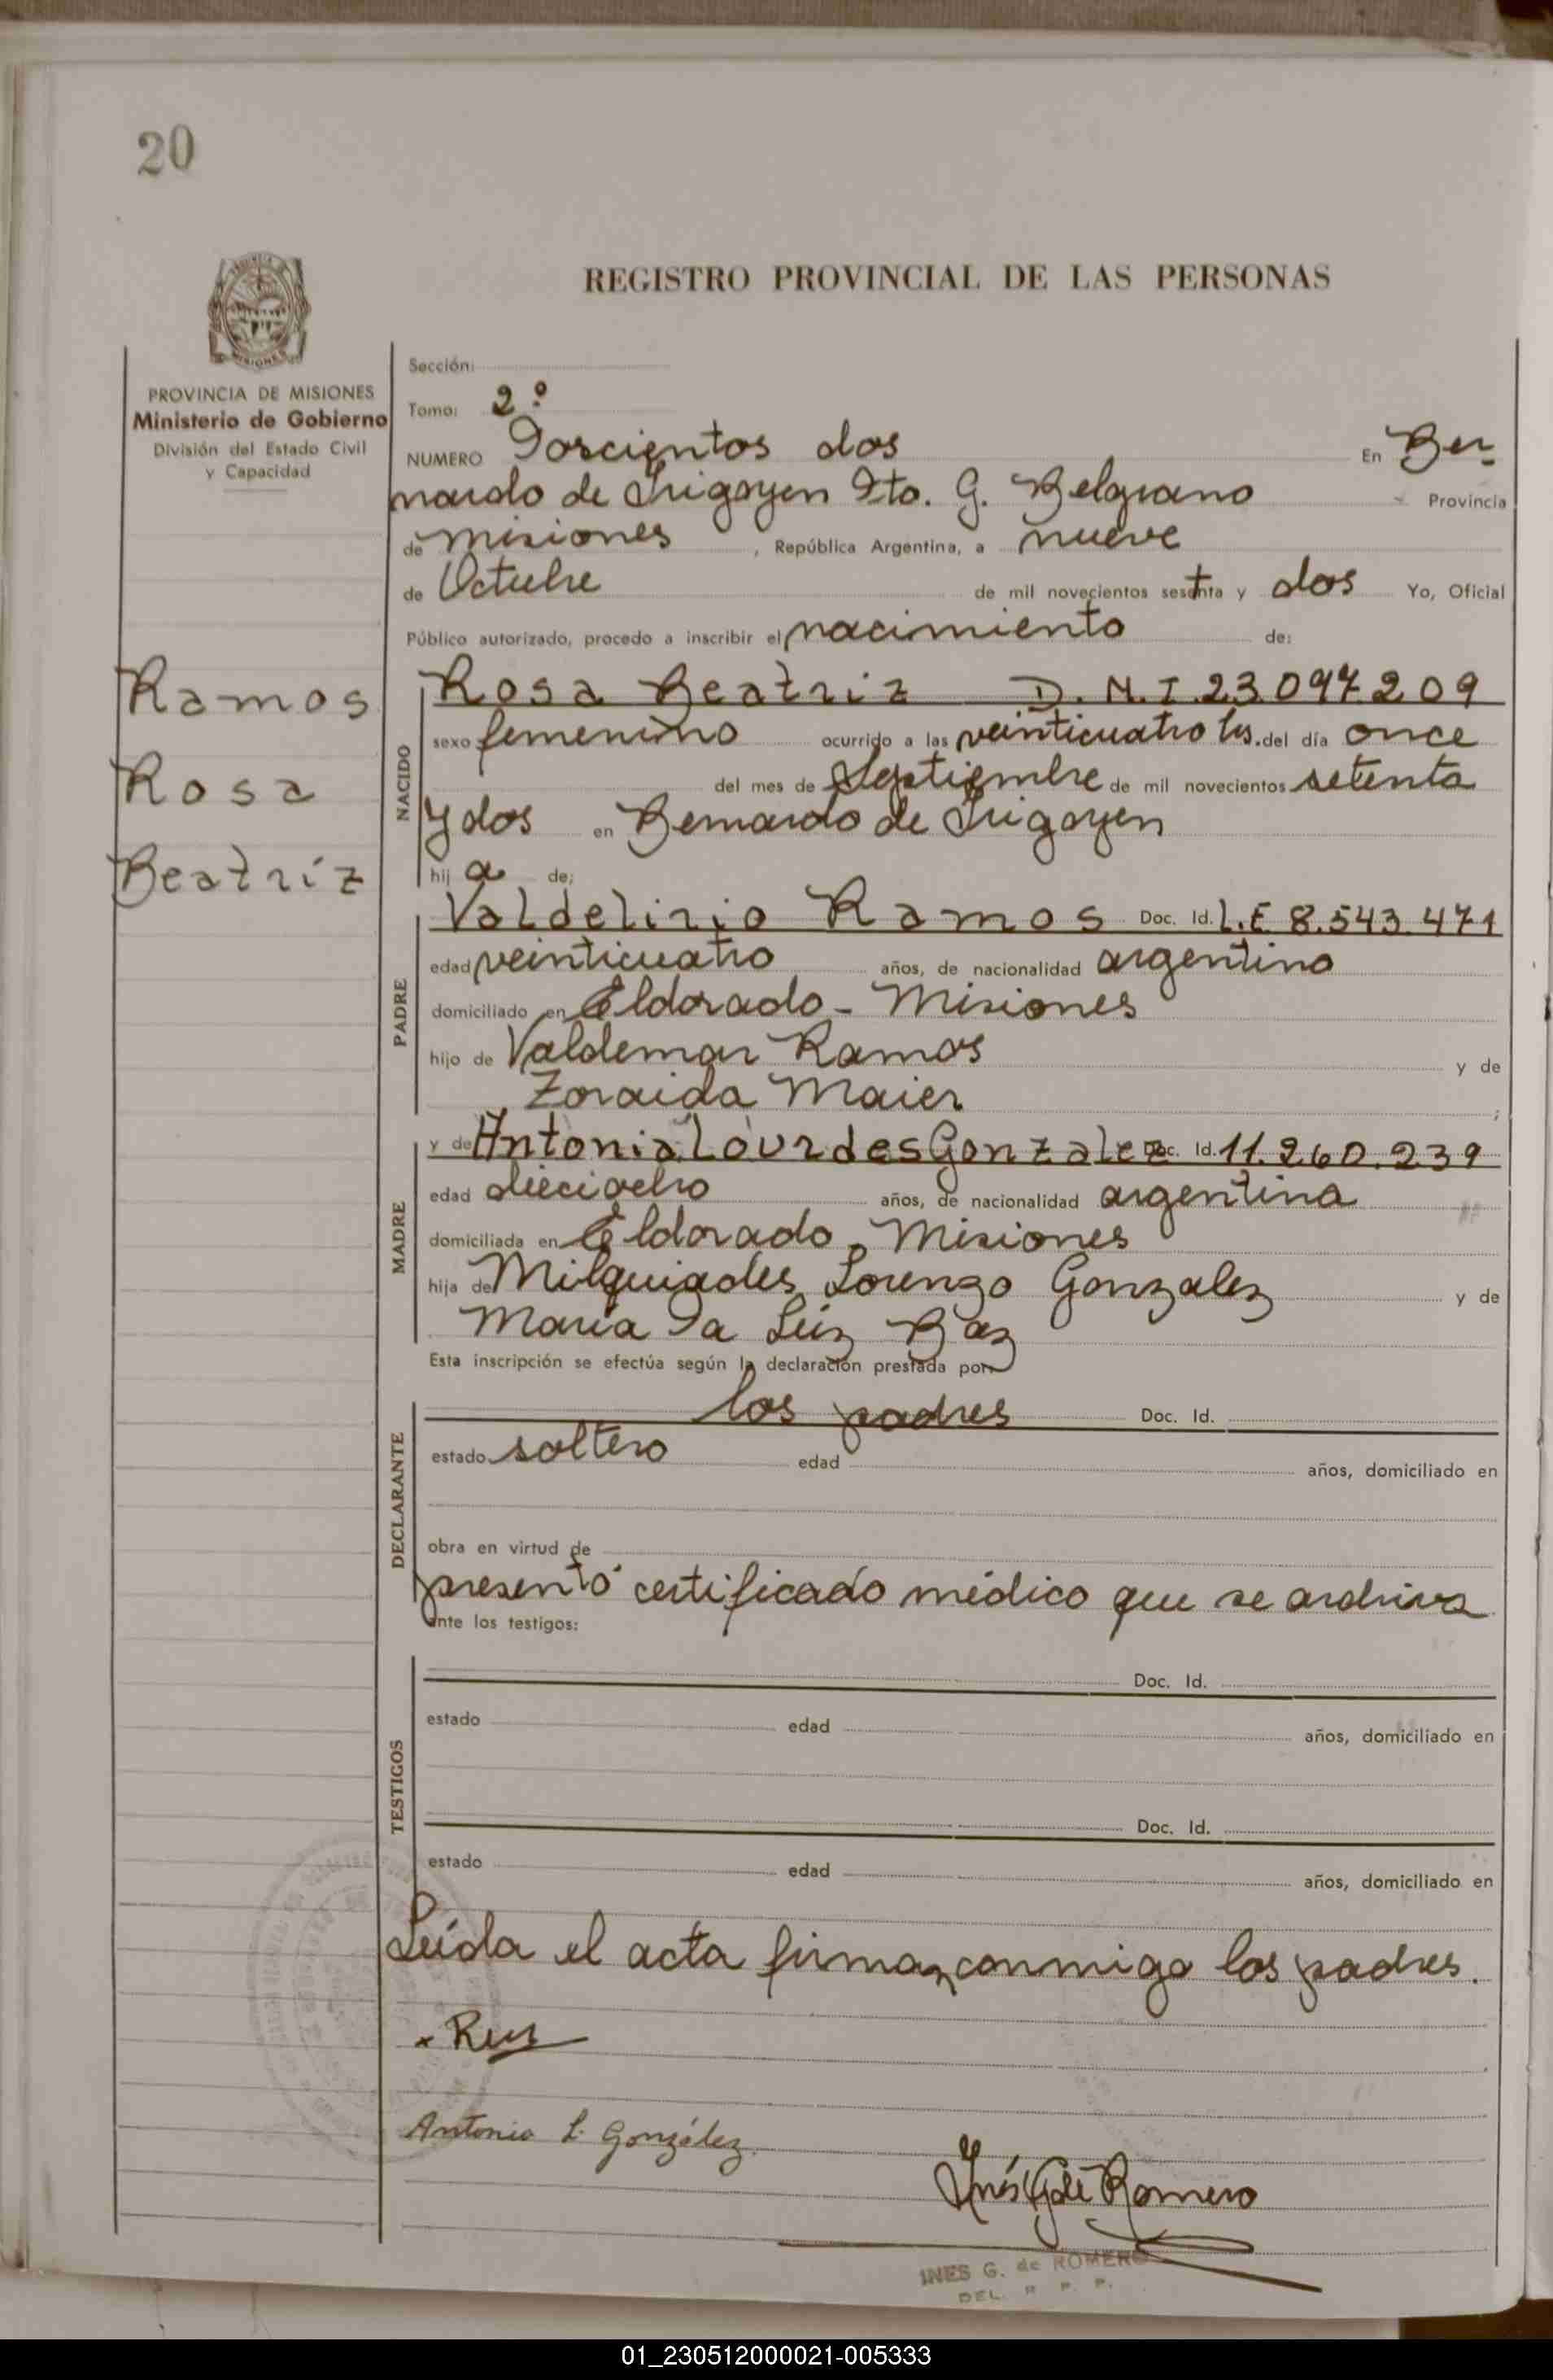 20
REGISTRO PROVINCIAL DE LAS PERSONAS
PROVINCIA DE MISIONES
Ministerio de Gobierno
División del Estado Civil
y Capacidad
Sección:
Tomo: 2º
NUMERO Doscientos dos En Ber-
nardo de Irigoyen Dto. G. Belgrano Provincia
de Misiones, República Argentina, a nueve
de Octubre de mil novecientos setenta y dos Yo, Oficial
Público autorizado, procedo a inscribir el nacimiento de:
Ramos
Rosa
Beatríz
NACIDO
Rosa Beatriz D.N.I 23.097.209
sexo femenino ocurrido a las veinticuatro hs. del día once
del mes de Septiembre de mil novecientos setenta
y dos en Bernardo de Irigoyen
hij a de;
PADRE
Valdelirio Ramos Doc. Id. L.E 8.543.471
edad veinticuatro años, de nacionalidad argentino
domiciliado en Eldorado - Misiones
hijo de Valdemar Ramos y de
Zoraida Maier ;
MADRE
y de Antonia Lourdes Gonzalez Doc. Id. 11.260.239
edad dieciocho años, de nacionalidad argentina
domiciliada en Eldorado - Misiones
hija de Milquiades Lorenzo Gonzalez y de
María Da Luz Baz
Esta inscripción se efectúa según la declaración prestada por:
DECLARANTE
los padres Doc. Id.
estado soltero edad años, domiciliado en
obra en virtud de
presentó certificado médico que se archiva
ante los testigos:
TESTIGOS
Doc. Id.
estado edad años, domiciliado en
Doc. Id.
estado edad años, domiciliado en
Leída el acta firman conmigo los padres.
Antonia L. González.
Inés G de Romero
INES G. de ROMERO
DEL. R P. P.
01_230512000021-005333